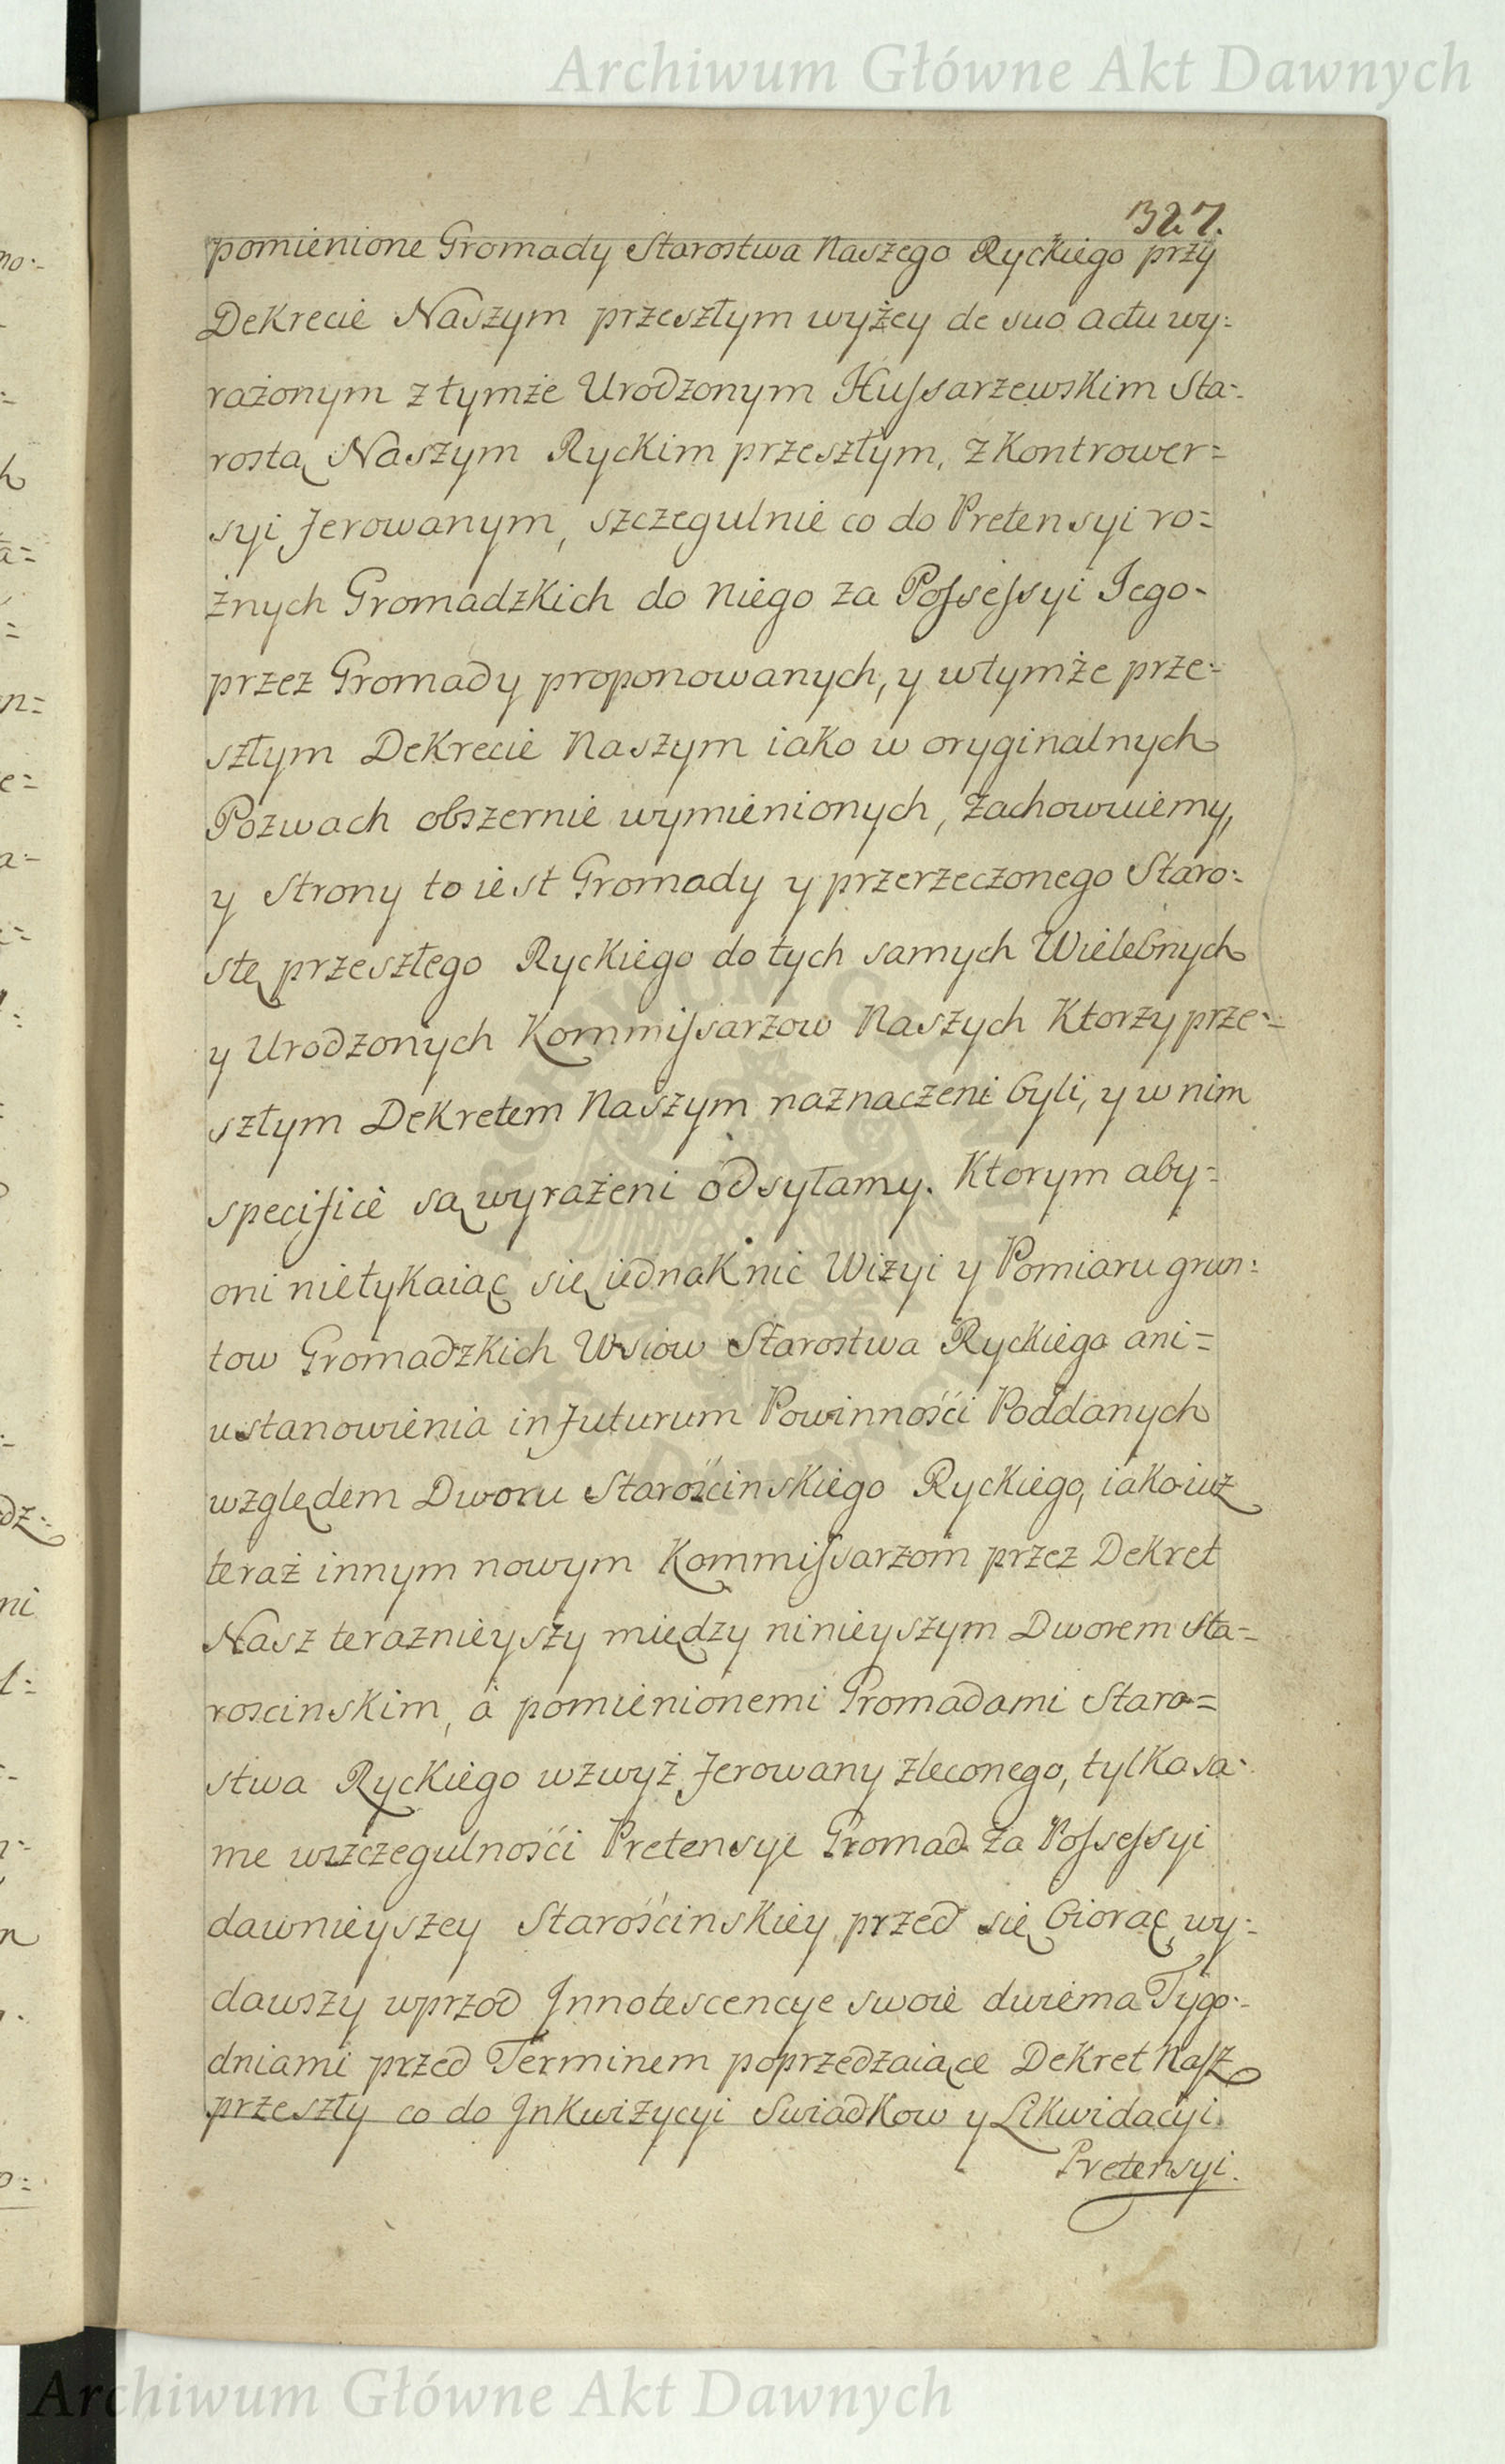 Archiwum Główne Akt Dawnych
327.
pomienione Gromady Starostwa Naszego Ryckiego przy
Dekrecie Naszym przeszłym wyżey de suo actu wy:
rażonym z tymże Urodzonym Hussarzewskim Sta:
rostą Naszym Ryckim przeszłym, z Kontrower=
syi ferowanym, szczegulnie co do Pretensyi ro=
żnych Gromadzkich do niego za Possessyi Jego-
przez Gromady proponowanych, y w tymże prze:
szłym Dekrecie Naszym iako w oryginalnych
Pozwach obszernie wymienionych, zachowuiemy,
y Strony to iest Gromady y przerzeczonego Staro:
stę przeszłego Ryckiego do tych samych Wielebnych
y Urodzonych Kommissarzow Naszych Ktorzy prze:
szłym Dekretem Naszym naznaczeni byli, y w nim
specifice są wyrażeni odsyłamy. Ktorym aby=
oni nietykaiąc się iednak nic Wizyi y Pomiaru grun:
tow Gromadzkich Wsiow Starostwa Ryckiego ani=
ustanowienia in futurum Powinności Poddanych
względem Dworu Starościnskiego Ryckiego, iako iuż
teraż innym nowym Kommissarzom przez Dekret
Nasz teraznieyszy między ninieyszym Dworem Sta=
roscinskim, à pomienionemi Gromadami Staro=
stwa Ryckiego wzwyż ferowany zleconego, tylko sa:
me wszczegulności Pretensye Gromad za Possessyi
dawnieyszey Starościnskiey przed się biorąc, wy:
dawszy wprzod Jnnotescencye swoie dwiema Tygo:
dniami przed Terminem poprzedzaiące Dekret Nasz
przeszły co do Jnkwizycyi Swiadkow y Likwidacyi
Pretensyi.
Archiwum Główne Akt Dawnych